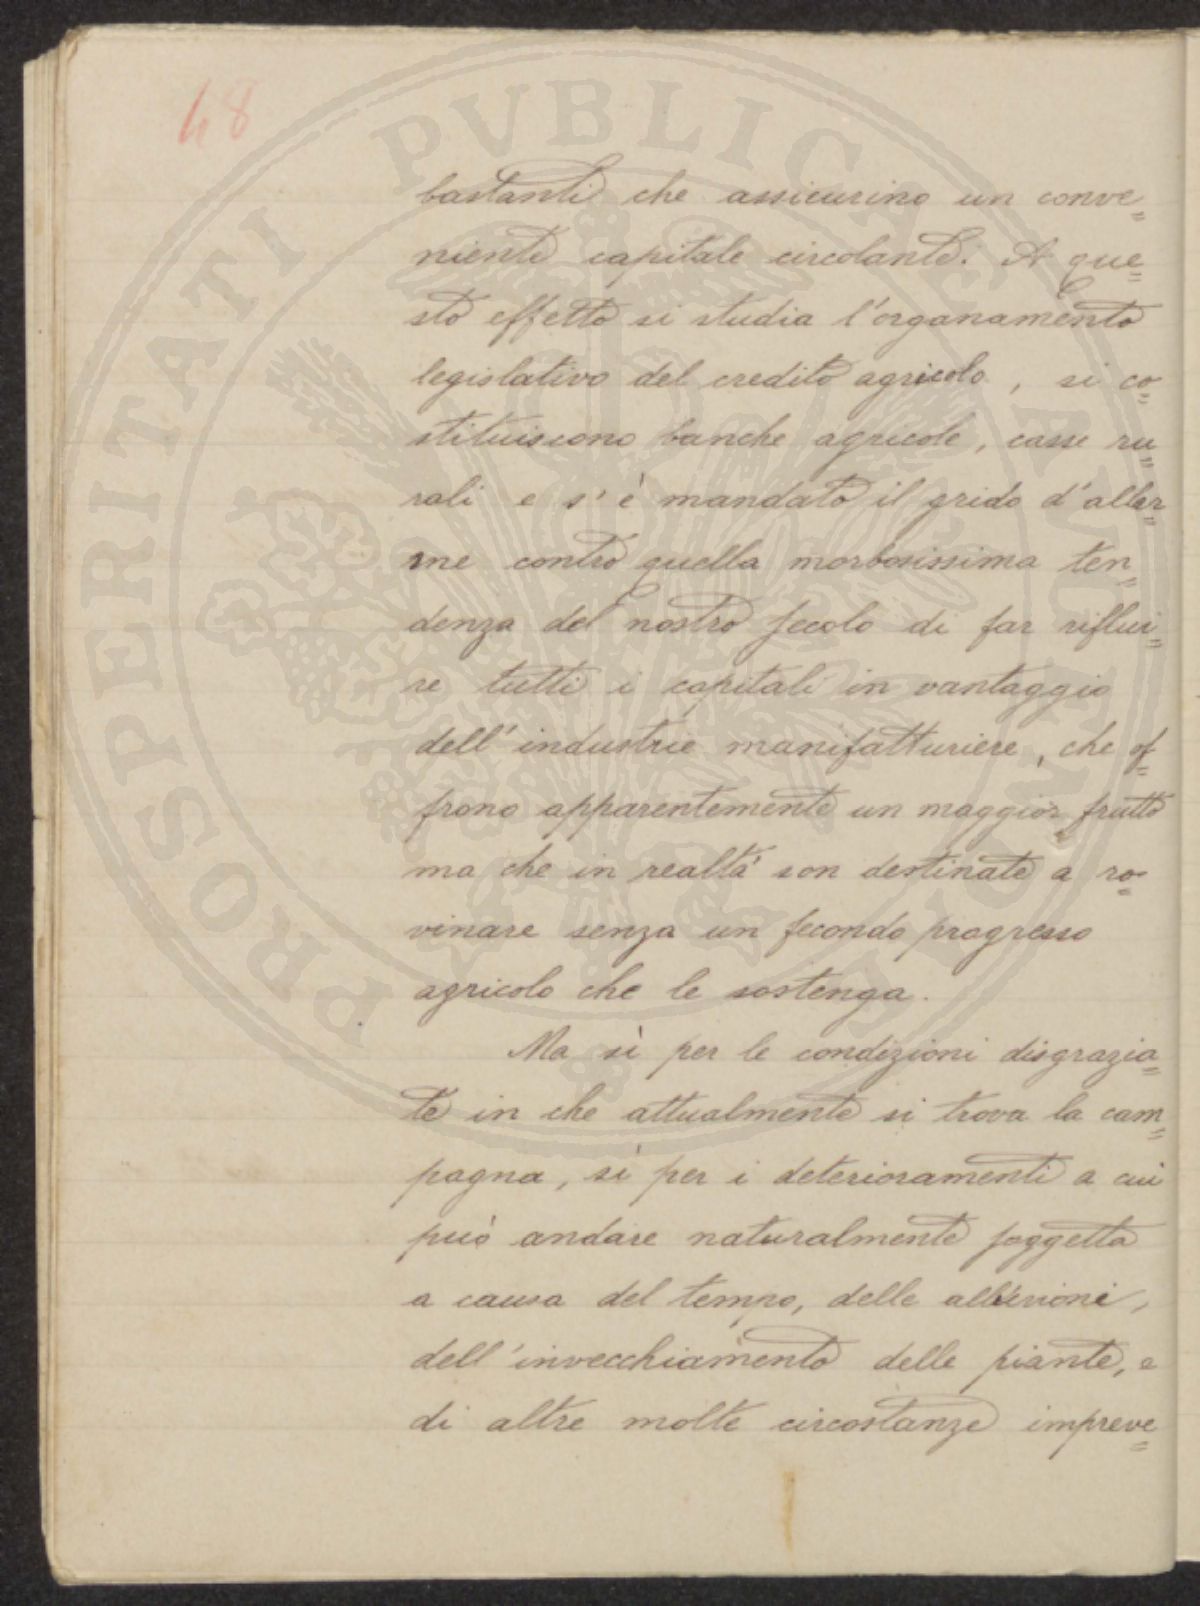 48
bastanti che assicurino un conve=
niente capitale circolante. A que=
sto effetto si studia l'organamento
legislativo del credito agricolo, si co=
stituiscono banche agricole, casse ru=
rali e s'è mandato il grido d'allar=
me contro quella morbosissima ten=
denza del nostro secolo di far riflui=
re tutti i capitali in vantaggio
dell'industrie manifatturiere, che of=
frono apparentemente un maggior frutto
ma che in realtà son destinate a ro=
vinare senza un fecondo progresso
agricolo che le sostenga.
Ma sì per le condizioni disgrazia=
te in che attualmente si trova la cam=
pagna, sì per i deterioramenti a cui
può andare naturalmente soggetta
a causa del tempo, delle alluvioni,
dell'invecchiamento delle piante, e
di altre molte circostanze impreve=
PROSPERITATI PVBLICAE